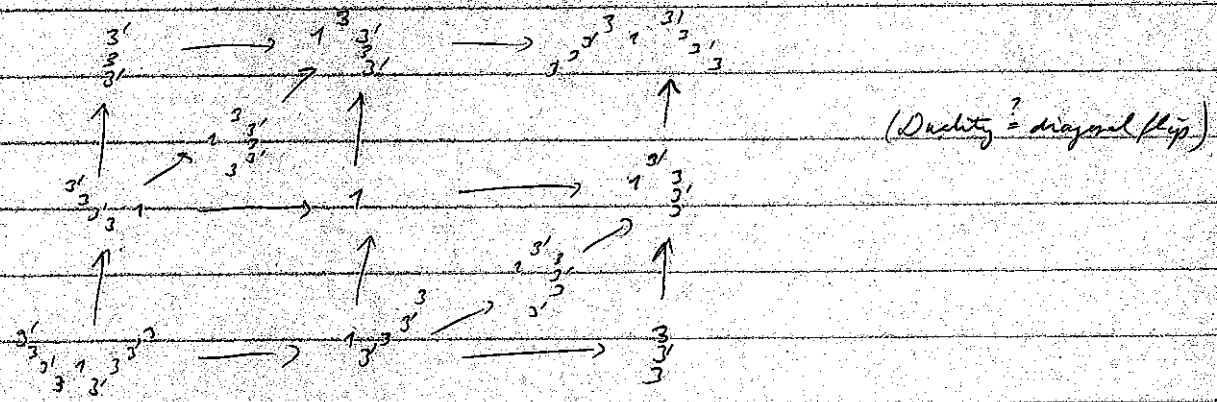 3' 3 3' → 1 3 3' 3 3' → 3 3' 3 1 3' 3 3' 3
1 3 3' 3 3' 3
(Duality ?= diagonal flip)
3' 3 3' 3 1 → 1 → 1 3' 3 3' 3
1 3' 3 3' 3 3'
3' 3 3' 3 1 3' 3 3' 3 → 1 3' 3 3' 3 → 3 3' 3